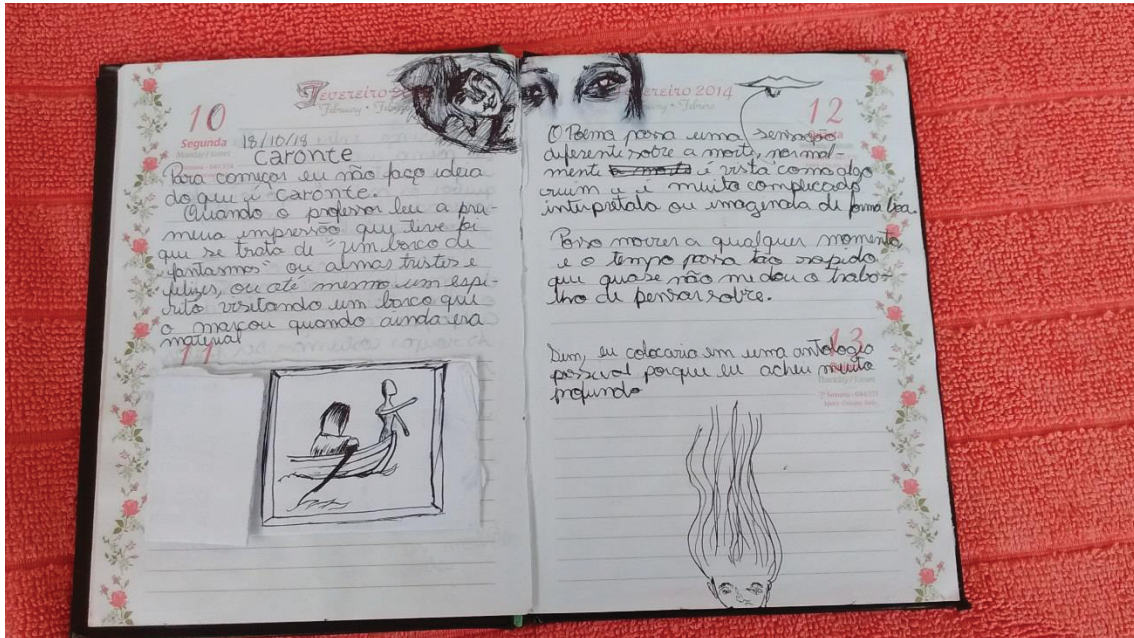 10
Fevereiro
February • Febrero
Segunda
18/10/18
Caronte
Para começar eu não faço ideia
do que é Caronte.
Quando o professor leu a pri-
meira impressão que tive foi
que se trata de "um barco de
fantasmas" ou almas tristes e
felizes, ou até mesmo um espí-
rito visitando um barco que
o marcou quando ainda era
material
11
Fevereiro 2014
February • Febrero
12
O Poema passa uma sensação
diferente sobre a morte, normal-
mente a morte é vista como algo
ruim e é muito complicado
interpretala ou imaginala de forma boa.
Posso morrer a qualquer momento
e o tempo passa tão rapido
que quase não me dou o traba-
lho de pensar sobre.
13
Sim, eu colocaria em uma antologia
pessoal porque eu achei muito
profundo